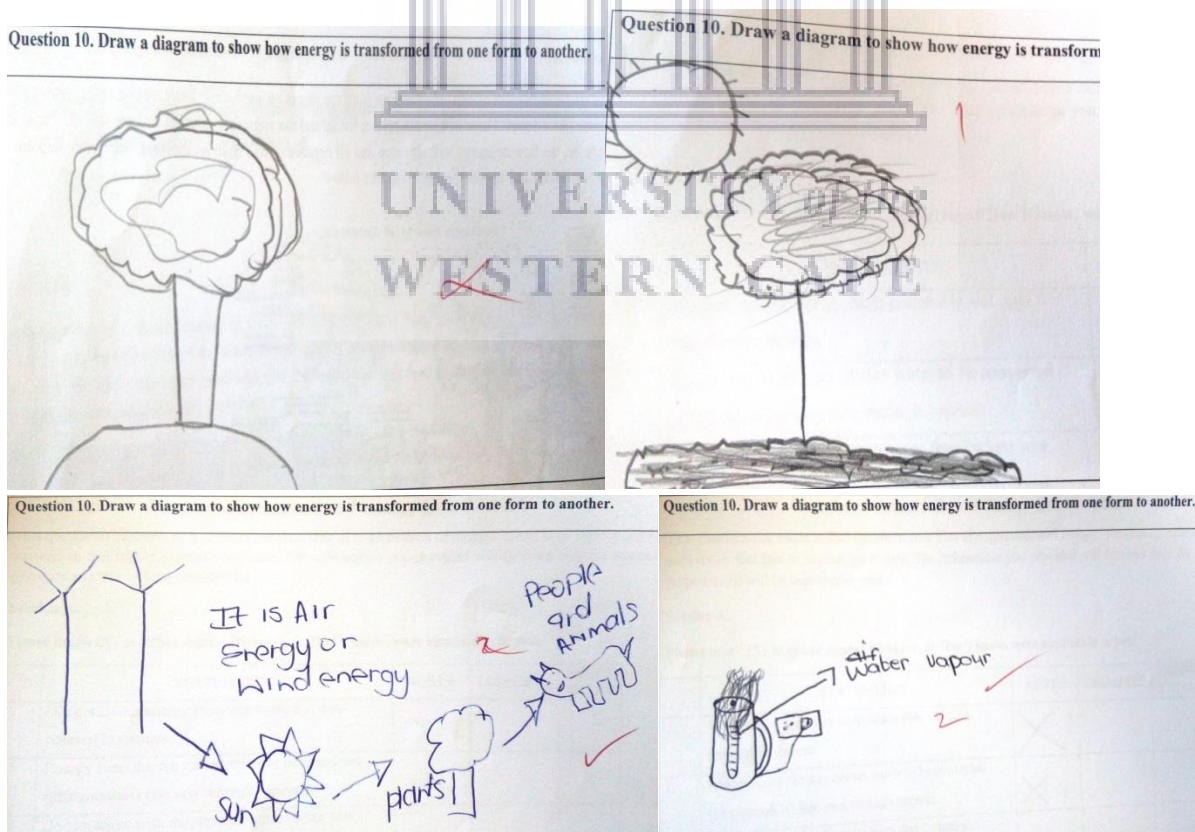 Question 10. Draw a diagram to show how energy is transformed from one form to another.
Question 10. Draw a diagram to show how energy is transform
1
UNIVERSITY of the
WESTERN CAPE
Question 10. Draw a diagram to show how energy is transformed from one form to another.
It is Air
Energy or
Wind energy
2
People
and
Animals
sun
plants
Question 10. Draw a diagram to show how energy is transformed from one form to another.
Water Vapour
2